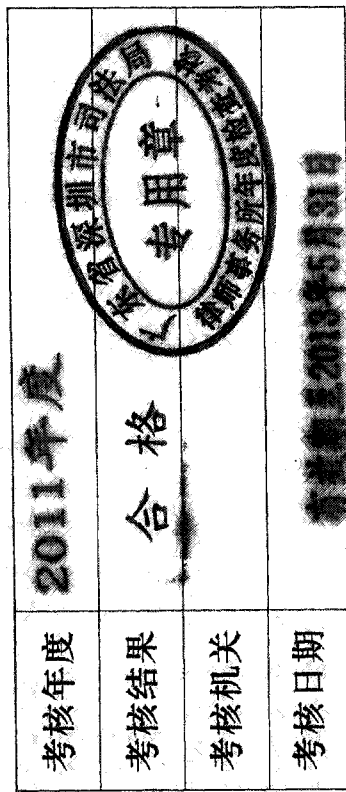 考核年度 2011年度
考核结果 合格
考核机关
广东省深圳市司法局
专用章
律师事务所年度检查考核
考核日期 有效期至2013年5月31日